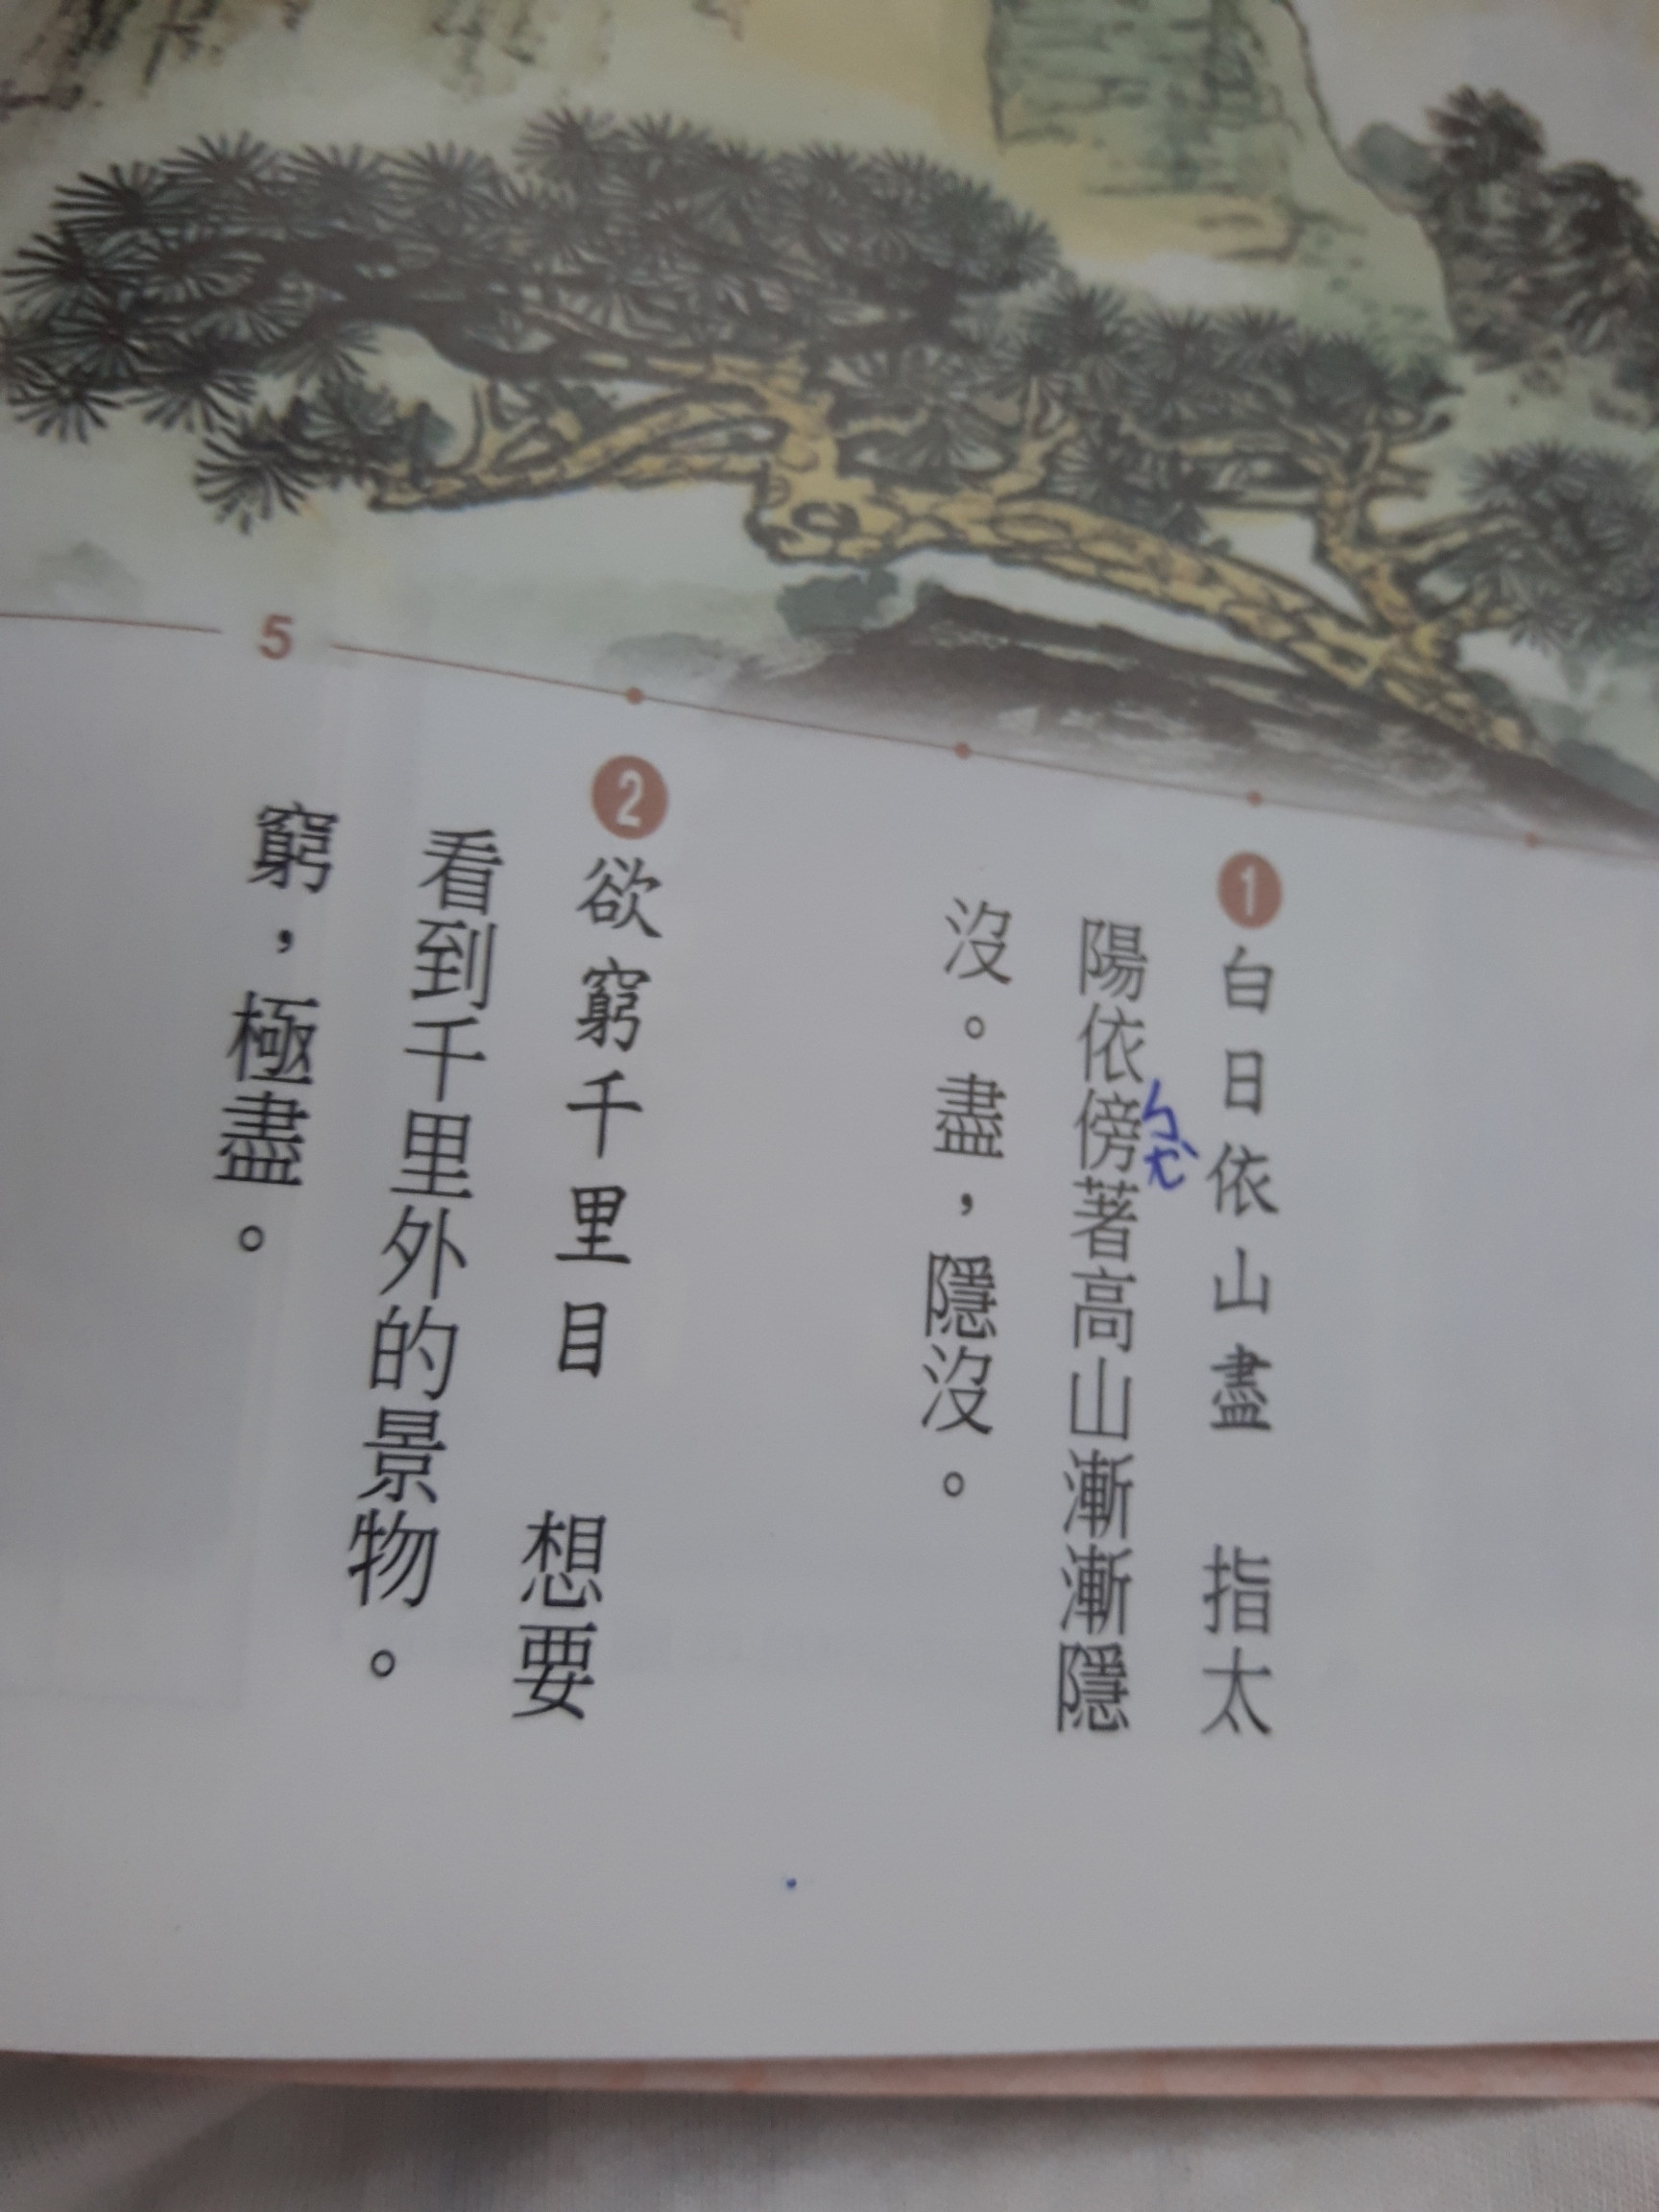 ❶白日依山盡　指太
陽依傍著高山漸漸隱
沒。盡，隱沒。
ㄅㄤˋ
❷欲窮千里目　想要
看到千里外的景物。
窮，極盡。
5